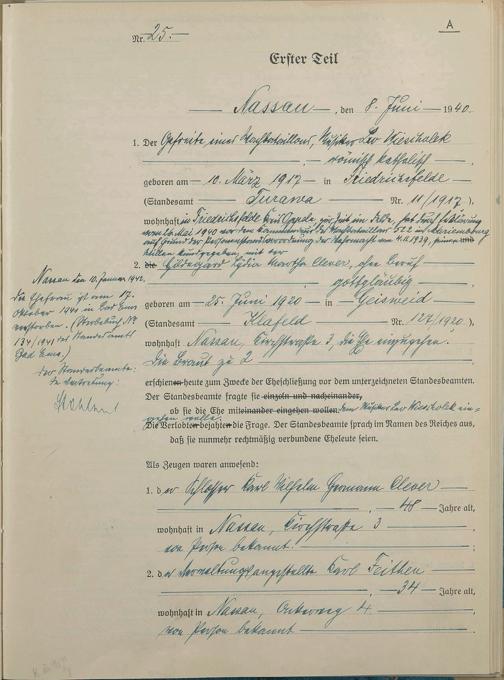 A
Nr. 25.
Erster Teil
Nassau, den 8. Juni 1940.
1. Der Gefreite eines Wachbataillons, Musiker Leo Wieschalek
, römisch katholisch
geboren am 10. März 1917 in Friedrichsfelde
(Standesamt Turawa Nr. 11/1917),
wohnhaft in Friedrichsfelde Kreis Oppeln, zur Zeit im Felde, hat durch Erklärung
vom 16. Mai 1940 vor dem Kommandeur des Wachbataillons 522 in Marienburg
auf Grund der Personenstandsverordnung der Wehrmacht vom 4.11.1939, seinen
Willen kundgegeben, mit der
2. die Hildegard Lydia Martha Clever, ohne Beruf
gottgläubig
geboren am 25. Juni 1920 in Geisweid
(Standesamt Klafeld Nr. 127/1920),
wohnhaft Nassau, Kirchstraße 3, die Ehe einzugehen.
Die Braut zu 2
erschienen heute zum Zwecke der Eheschließung vor dem unterzeichneten Standesbeamten.
Der Standesbeamte fragte sie einzeln und nacheinander,
ob sie die Ehe miteinander eingehen wollen. dem Musiker Leo Wieschalek ein-
gehen wolle.
Die Verlobten bejahten die Frage. Der Standesbeamte sprach im Namen des Reiches aus,
daß sie nunmehr rechtmäßig verbundene Eheleute seien.
Als Zeugen waren anwesend:
1. der Schlosser Karl Wilhelm Hermann Clever
, 48 Jahre alt,
wohnhaft in Nassau, Kirchstraße 3
von Person bekannt.
2. der Verwaltungsangestellte Karl Feithen
, 34 Jahre alt,
wohnhaft in Nassau, 4.
von Person bekannt
Nassau den 10. Januar 1942.
Die Ehefrau ist am 17.
Oktober 1941 in Bad Ems
verstorben. (Sterbebuch Nr.
134/1941 des Standesamts
Bad Ems.)
Der Standesbeamte:
In Vertretung: